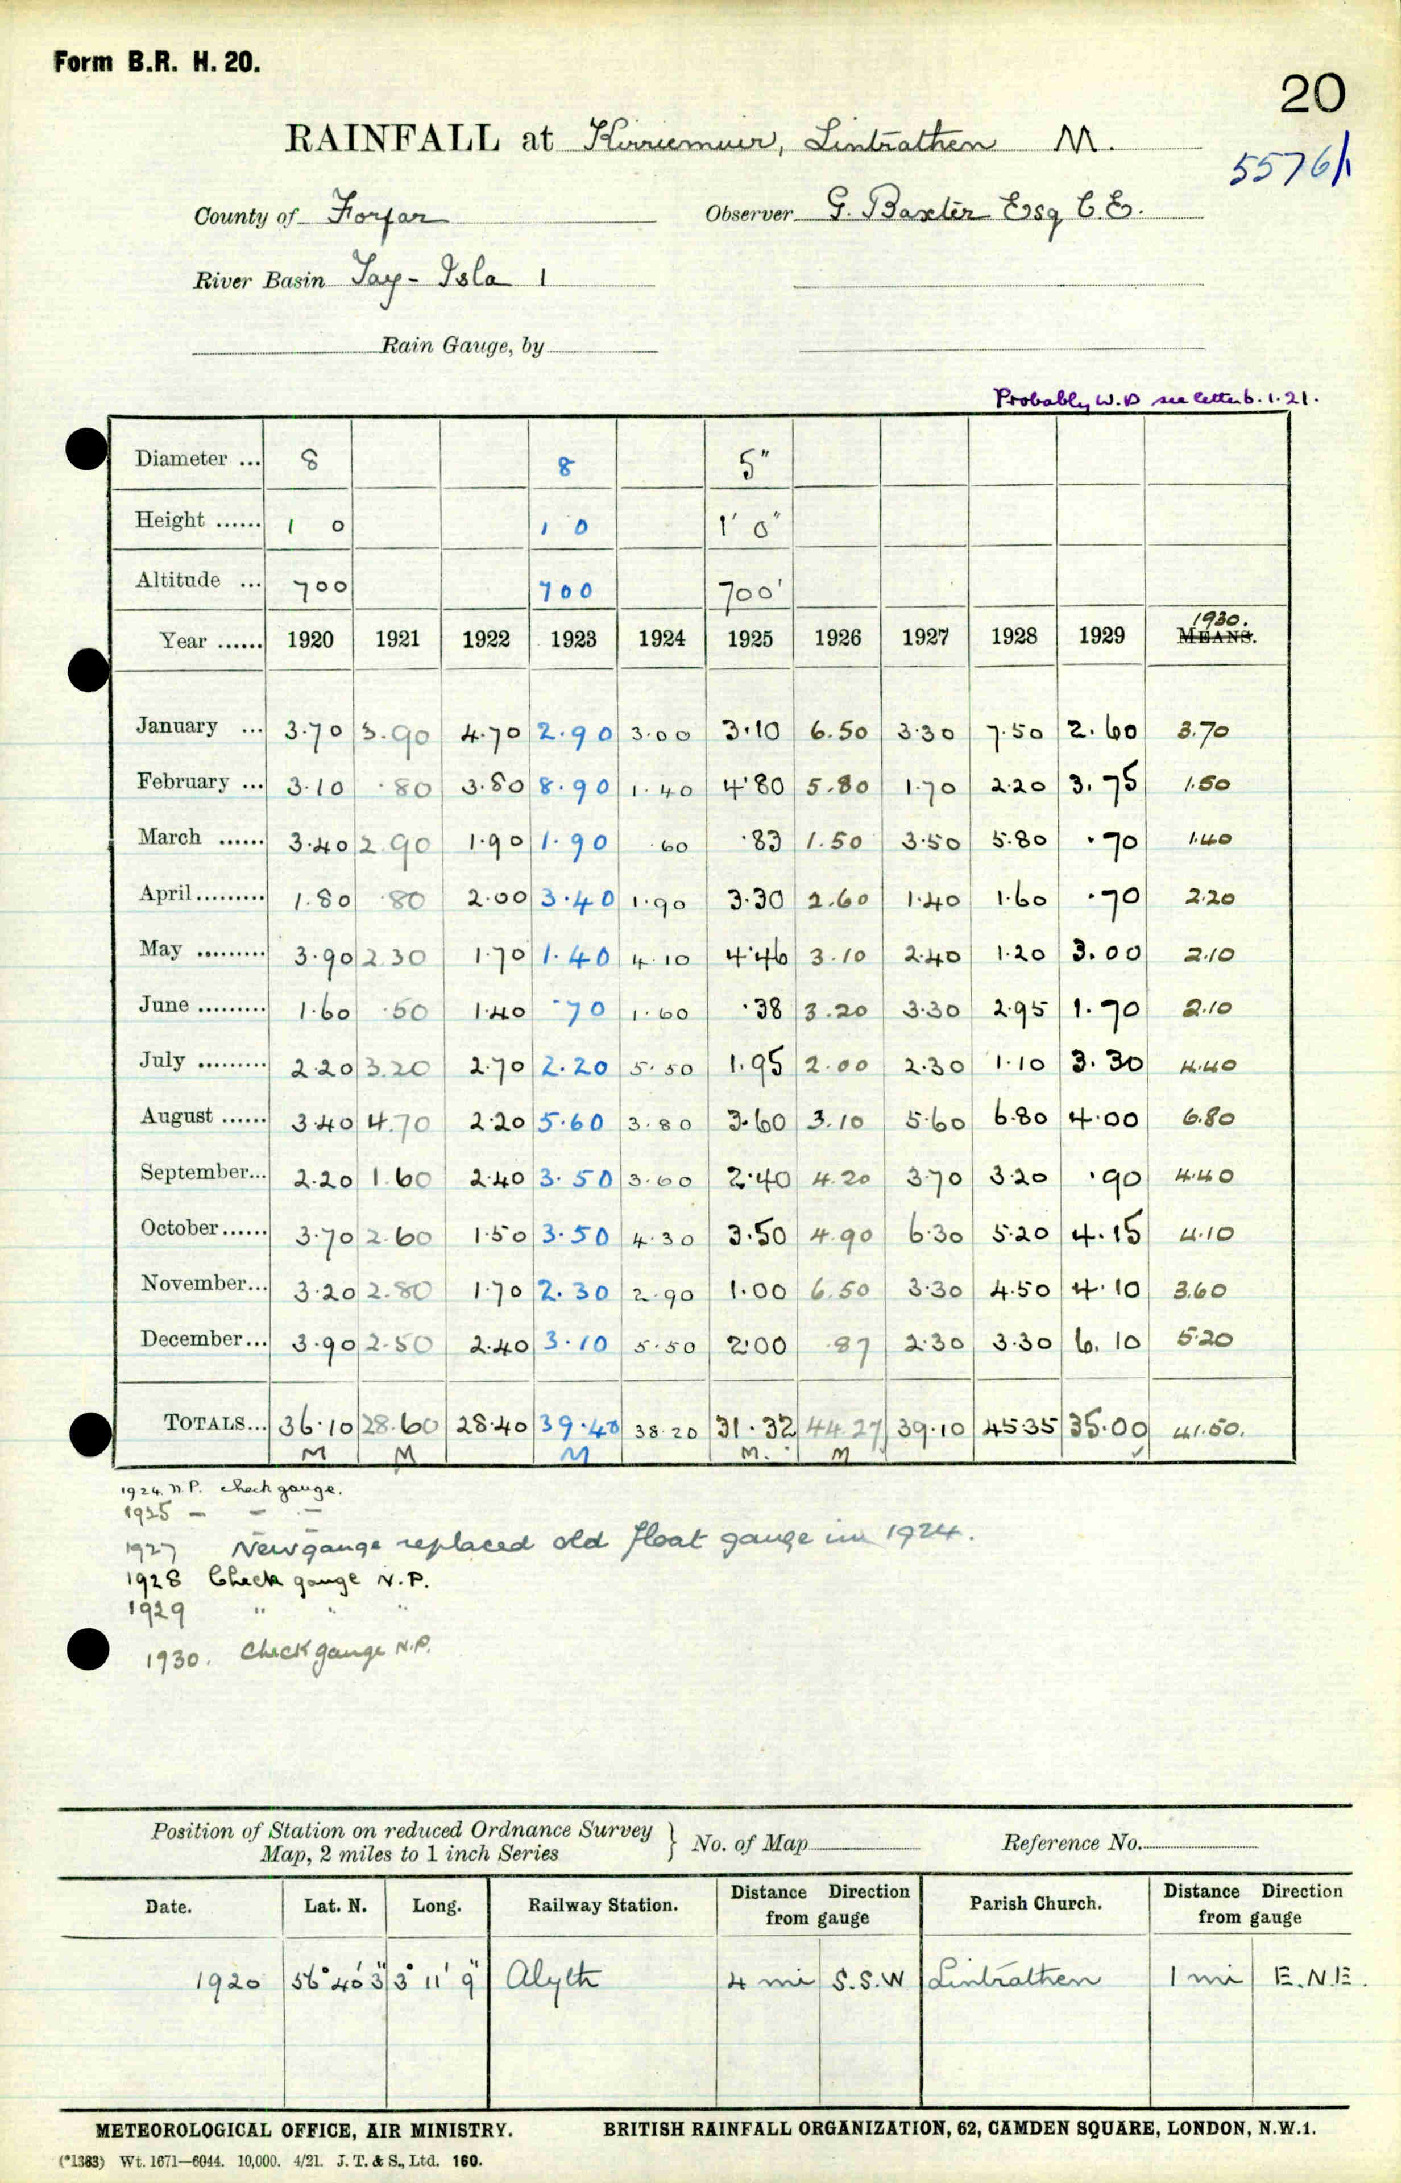 Form B.R. H. 20.
20
RAINFALL at Kirriemuir, Lintrathen M.
5576/1
County of Forfar Observer G. Baxter Esq C.E.
River Basin Tay - Isla 1
Rain Gauge, by
Probably W.D see letter 6.1.21.
Diameter ... 8 8 5"
Height ...... 1 0 1 0 1' 0"
Altitude ... 700 700 700'
1930.
Year ...... 1920 1921 1922 1923 1924 1925 1926 1927 1928 1929 MEANS.
January ... 3.70 3.90 4.70 2.90 3.00 3.10 6.50 3.30 7.50 2.60 3.70
February ... 3.10 .80 3.80 8.90 1.40 4.80 5.80 1.70 2.20 3.75 1.50
March ...... 3.40 2.90 1.90 1.90 .60 .83 1.50 3.50 5.80 .70 1.40
April ......... 1.80 .80 2.00 3.40 1.90 3.30 2.60 1.40 1.60 .70 2.20
May ......... 3.90 2.30 1.70 1.40 4.10 4.46 3.10 2.40 1.20 3.00 2.10
June ......... 1.60 .50 1.40 .70 1.60 .38 3.20 3.30 2.95 1.70 2.10
July ......... 2.20 3.20 2.70 2.20 5.50 1.95 2.00 2.30 1.10 3.30 4.40
August ...... 3.40 4.70 2.20 5.60 3.80 3.60 3.10 5.60 6.80 4.00 6.80
September... 2.20 1.60 2.40 3.50 3.60 2.40 4.20 3.70 3.20 .90 4.40
October...... 3.70 2.60 1.50 3.50 4.30 3.50 4.90 6.30 5.20 4.15 4.10
November... 3.20 2.80 1.70 2.30 2.90 1.00 6.50 3.30 4.50 4.10 3.60
December... 3.90 2.50 2.40 3.10 5.50 2.00 .87 2.30 3.30 6.10 5.20
TOTALS... 36.10 28.60 28.40 39.40 38.20 31.32 44.27 39.10 45.35 35.00 41.50.
M M M M. M
1924. N.P. check gauge.
1925 - - -
1927 New gauge replaced old float gauge in 1924.
1928 Check gauge N.P.
1929 " " "
1930. Check gauge N.P.
Position of Station on reduced Ordnance Survey
Map, 2 miles to 1 inch Series } No. of Map Reference No.
Date. Lat. N. Long. Railway Station. Distance Direction from gauge Parish Church. Distance Direction from gauge
1920 56° 40' 3" 3° 11' 9" Alyth 4 mi S.S.W Lintrathen 1 mi E.N.E.
METEOROLOGICAL OFFICE, AIR MINISTRY. BRITISH RAINFALL ORGANIZATION, 62, CAMDEN SQUARE, LONDON, N.W.1.
(*1383) Wt. 1671—6044. 10,000. 4/21. J. T. & S., Ltd. 160.